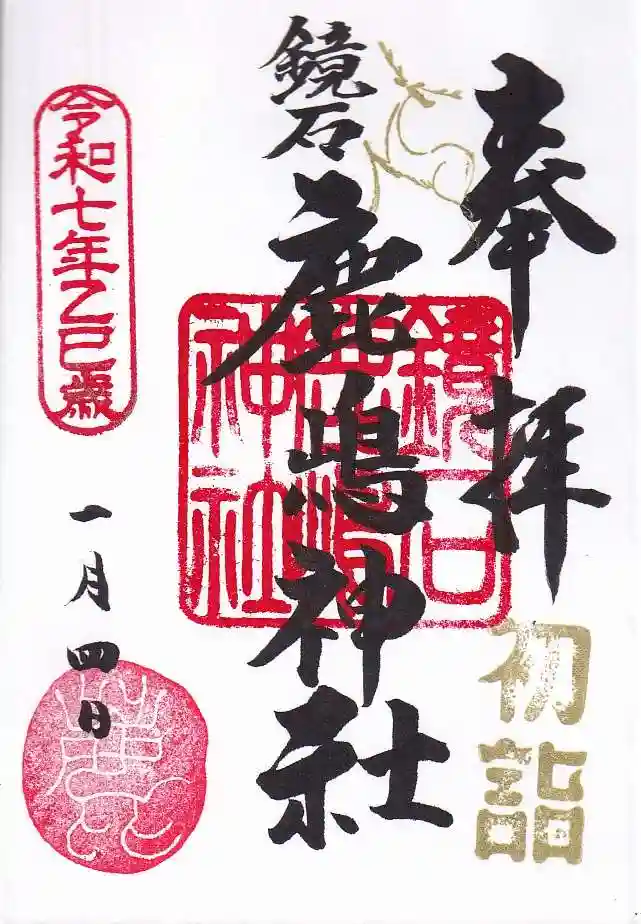 奉拝
初詣
鏡石
鹿嶋神社
鏡石
鹿嶋
神社
令和七年乙巳歳
一月四日
鹿